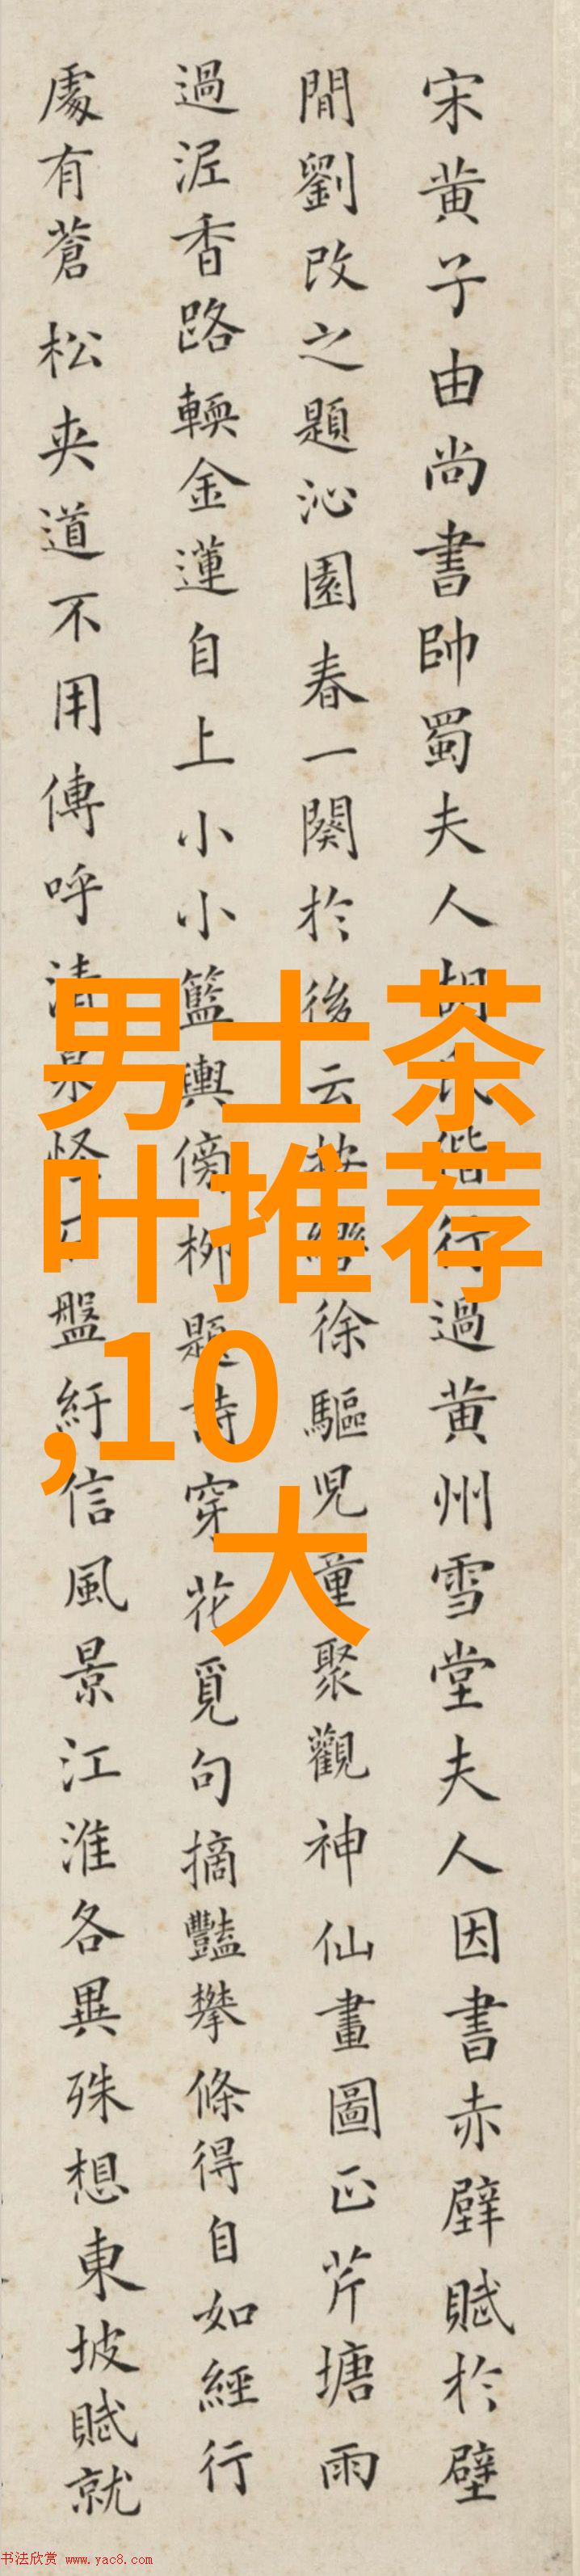 宋黄子由尚書帥蜀夫人胡氏偕行過黄州雪堂夫人因書赤壁賦於壁
間劉改之題沁園春一闋於後云按轡徐驅児童聚觀神仙畫圖正芹塘雨
過泥香路輭金蓮自上小小籃輿傍柳題詩穿花覓句摘豔攀條得自如經行
處有蒼松夾道不用傳呼清泉怪石盤紆信風景江淮各異殊想東坡賦就
男士茶
叶推荐
,10
大
书法欣赏 www.yac8.com